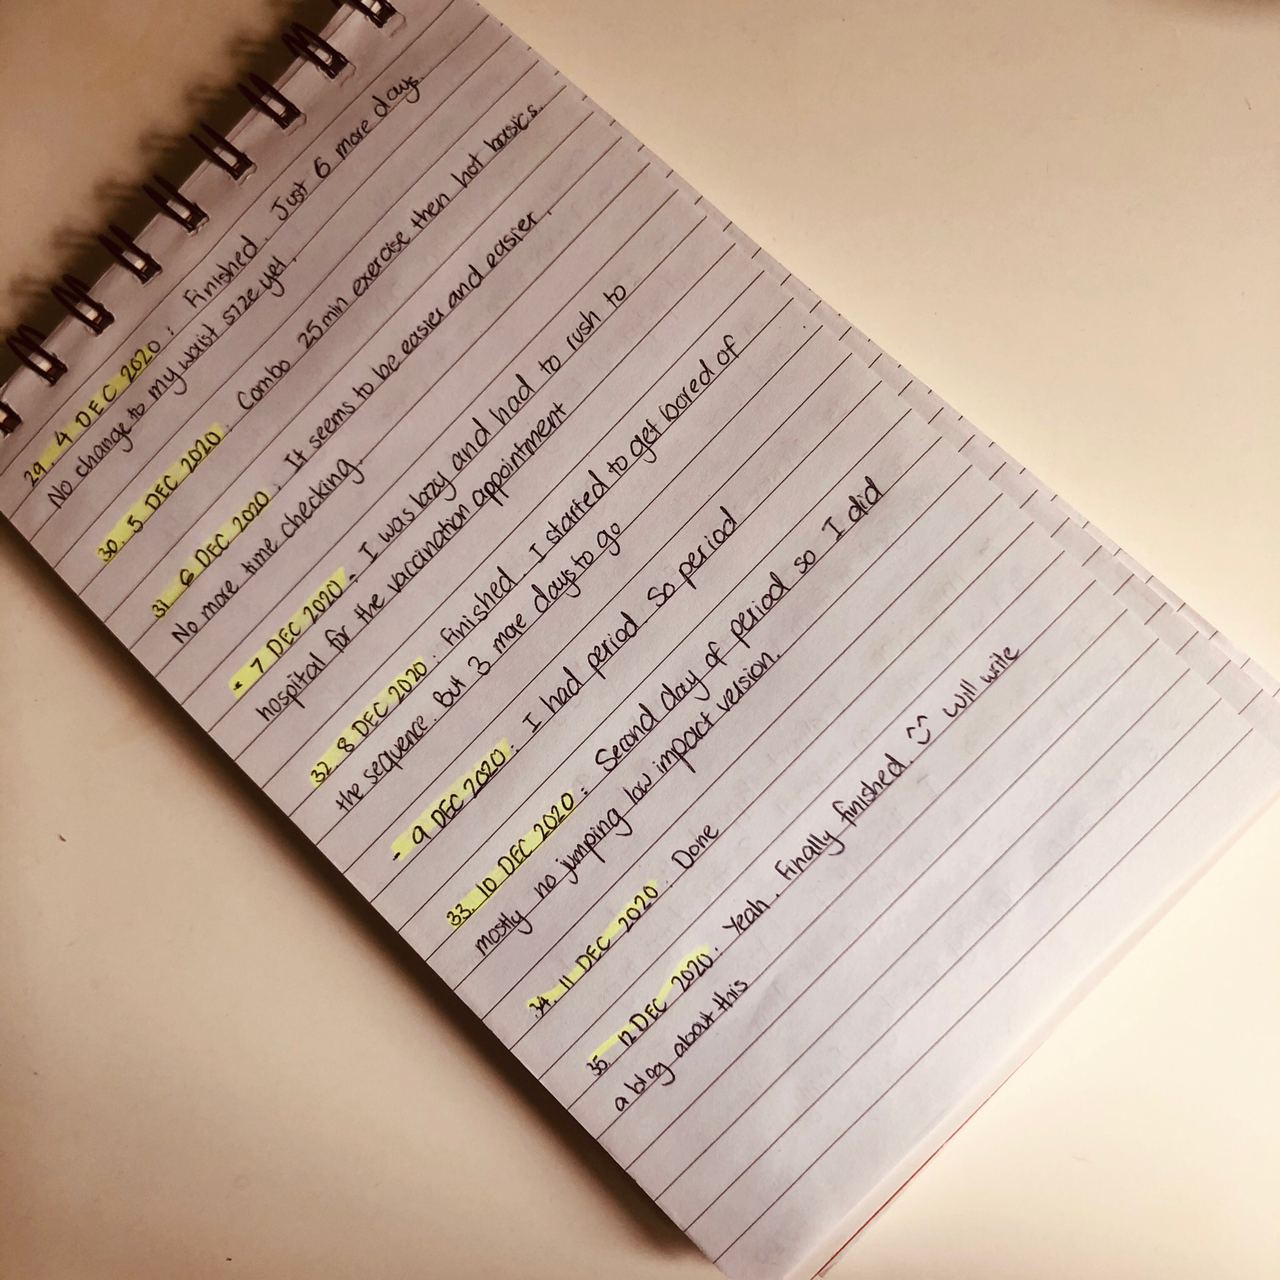 29. 4 DEC 2020 : Finished. Just 6 more days.
No change to my waist size yet.
30 5 DEC 2020 : Combo 25min exercise then hot basics.
31 6 DEC 2020 : It seems to be easier and easier.
No more time checking.
- 7 DEC 2020 : I was lazy and had to rush to
hospital for the vaccination appointment
32 8 DEC 2020 : Finished. I started to get bored of
the sequence. But 3 more days to go
- 9 DEC 2020 : I had period so period
33. 10 DEC 2020 : Second day of period so I did
mostly no jumping low impact version.
34. 11 DEC 2020 : Done
35. 12 DEC 2020 : Yeah. Finally finished. ^^ will write
a blog about this